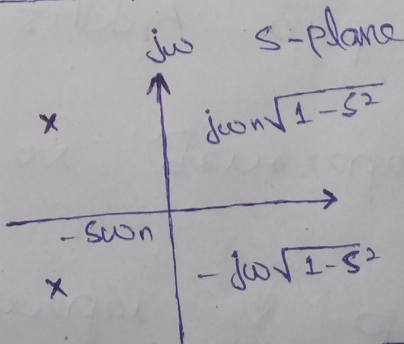 jω S-plane
jωn√1-ζ²
-ζωn
-jω√1-ζ²